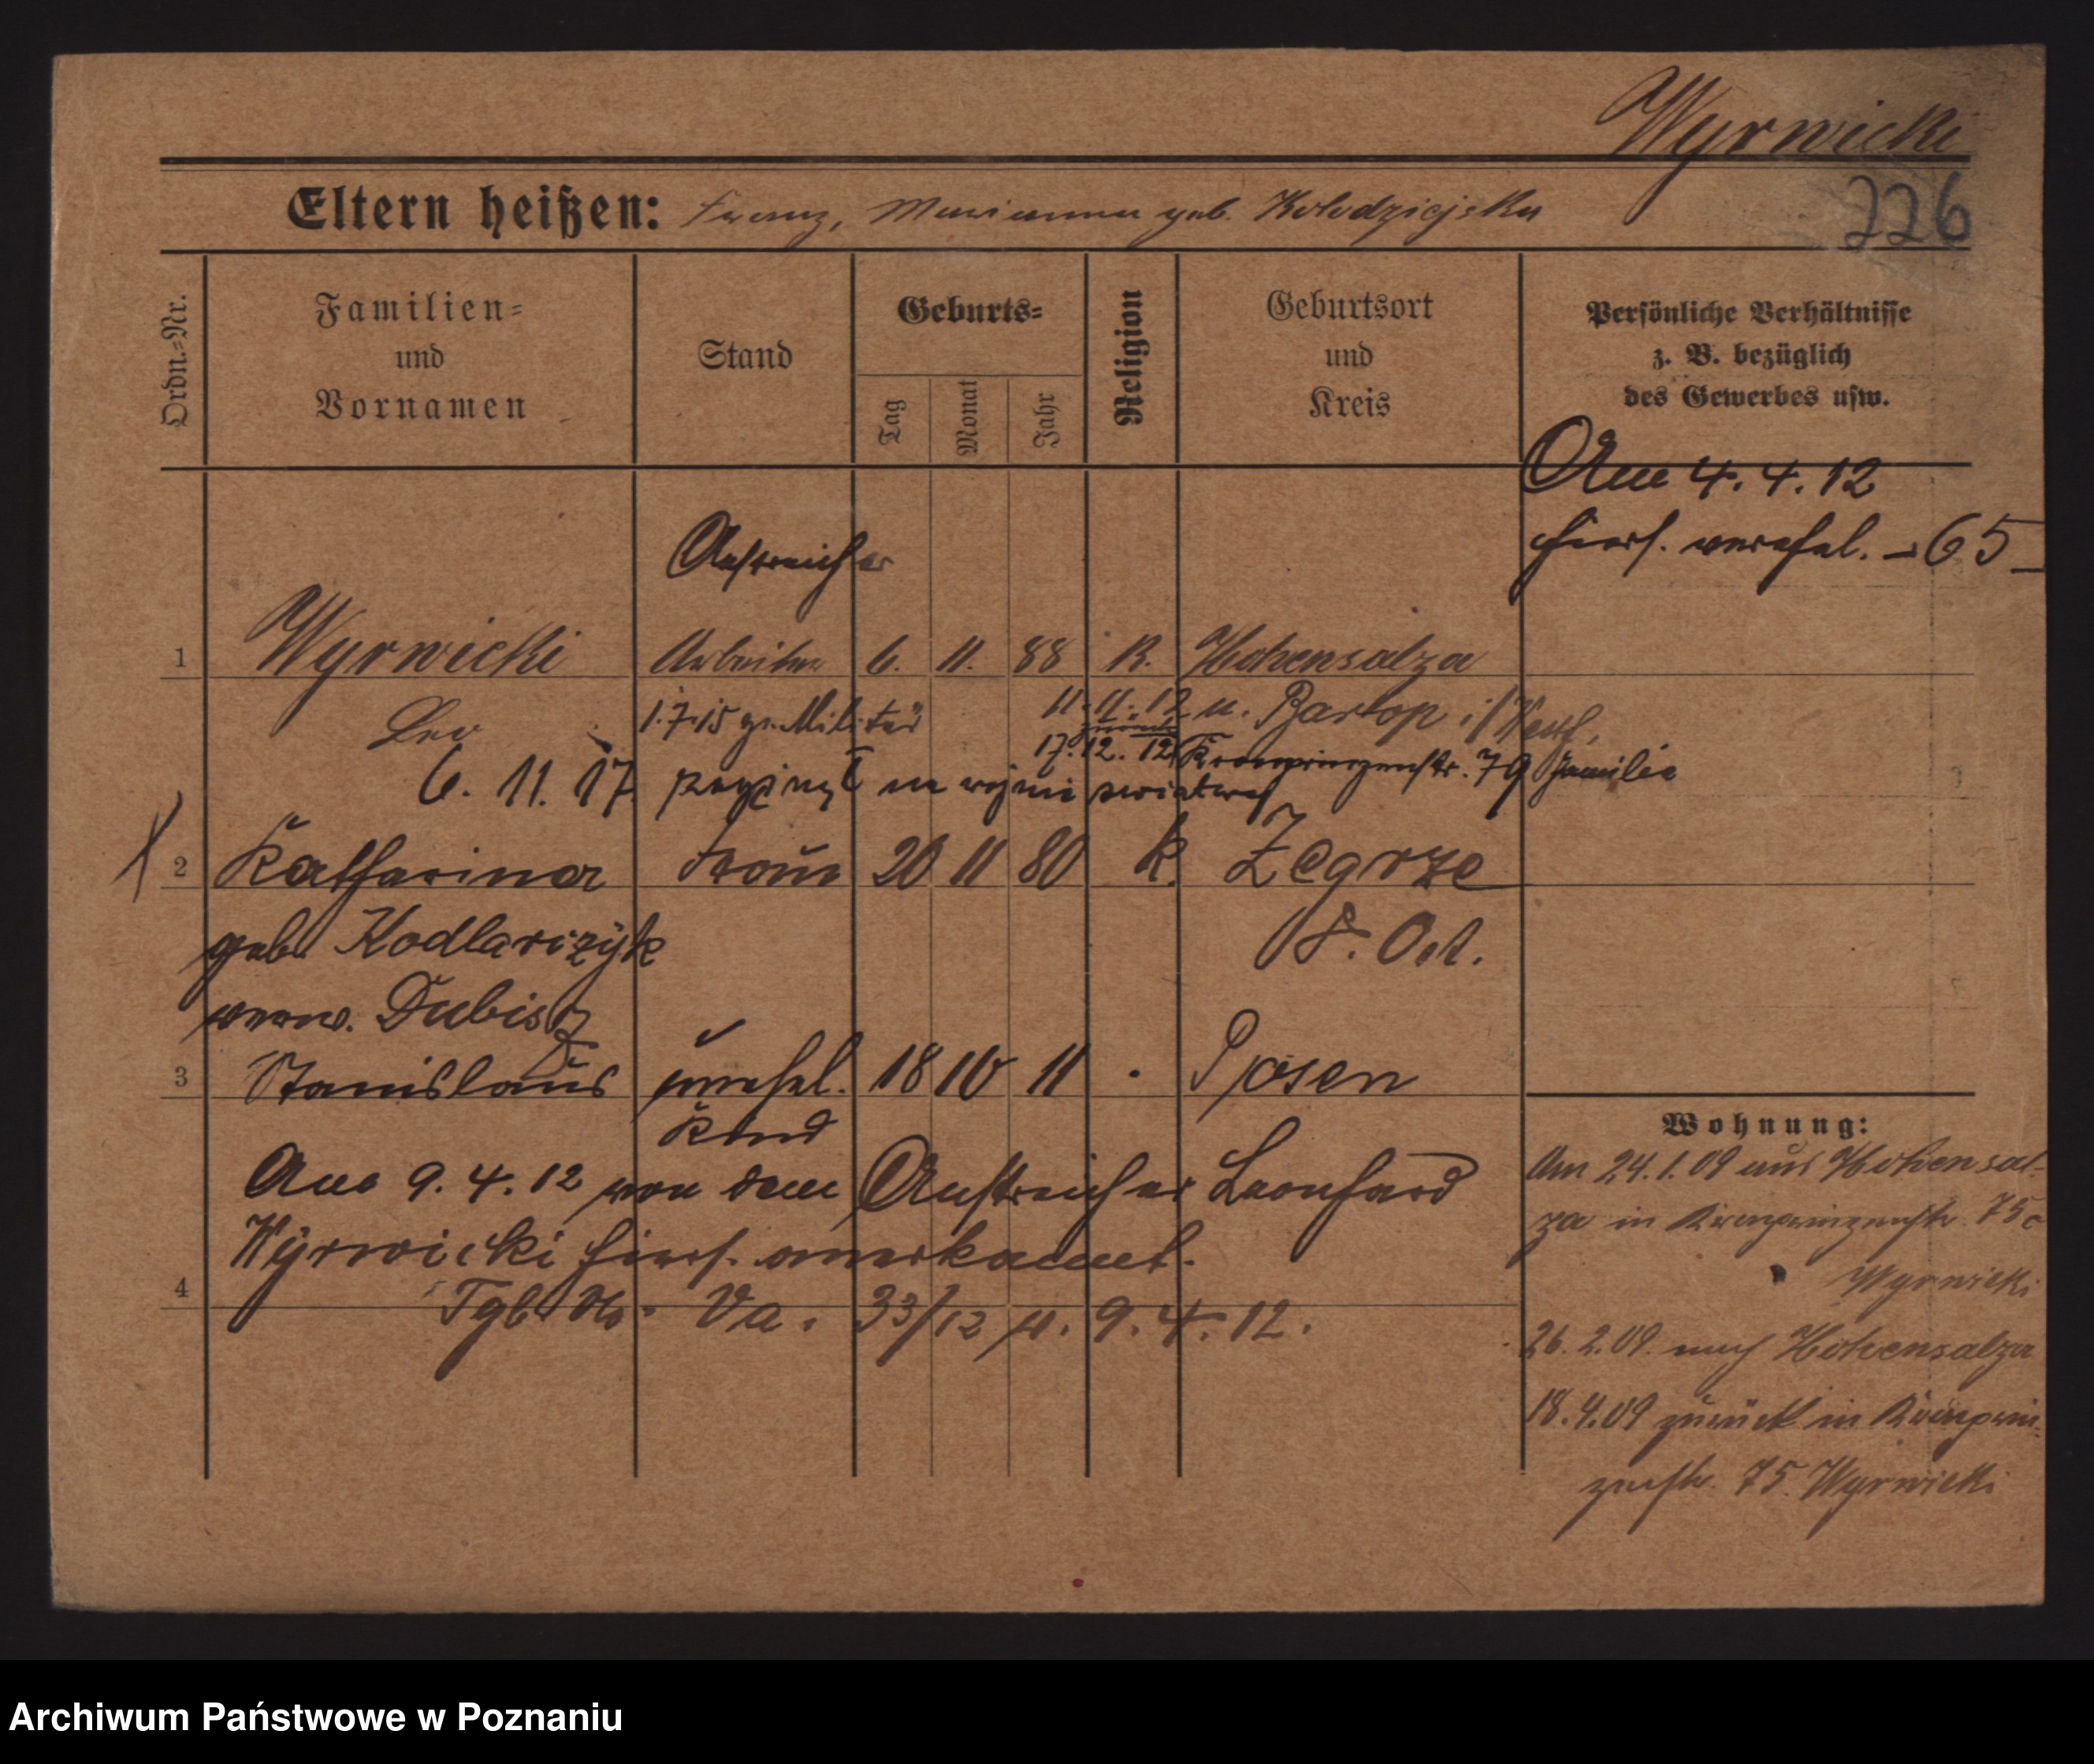 Wyrwicki
226
Eltern heißen: Franz, Marianna geb. Kolodziejska
Ordn.-Nr.
Familien-
und
Vornamen
Stand
Geburts-
Tag
Monat
Jahr
Religion
Geburtsort
und
Kreis
Persönliche Verhältnisse
z. B. bezüglich
des Gewerbes usw.
Am 4. 4. 12
hiers. verehel. - 65 -
Anstreicher
1 Wyrwicki Arbeiter 6. 11. 88 K. Hohensalza
Leo 1.7.15 z. Militär 11. 11. 12 n. Barlop i/Westf.
17. 12. 12 Kronprinzenstr. 79 Familie
6. 11. 17 zaginął na wojnie światowej
2 Katharina Frau 20 11 80 k. Zegrze
geb. Kodlarizÿk P. Ost.
verw. Dubisz
3 Stanislaus unehel. 18 10 11 . Posen
Kind
Am 9. 4. 12 von dem Anstreicher Leonhard
Wÿrwicki hiers. anerkannt.
4
Tgb. No. Va. 33/12 v. 9. 4. 12.
Wohnung:
Am 24.1.09 aus Hohensal-
za in Kronprinzenstr. 75
Wyrwicki
26.2.09. nach Hohensalza
18.4.09 zurück in Kronprin-
zenstr. 75. Wyrwicki
Archiwum Państwowe w Poznaniu